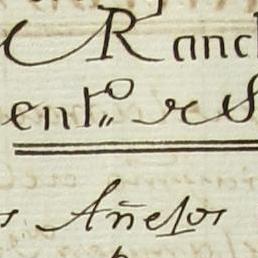 Ranch
ent.º de S
s Añejos